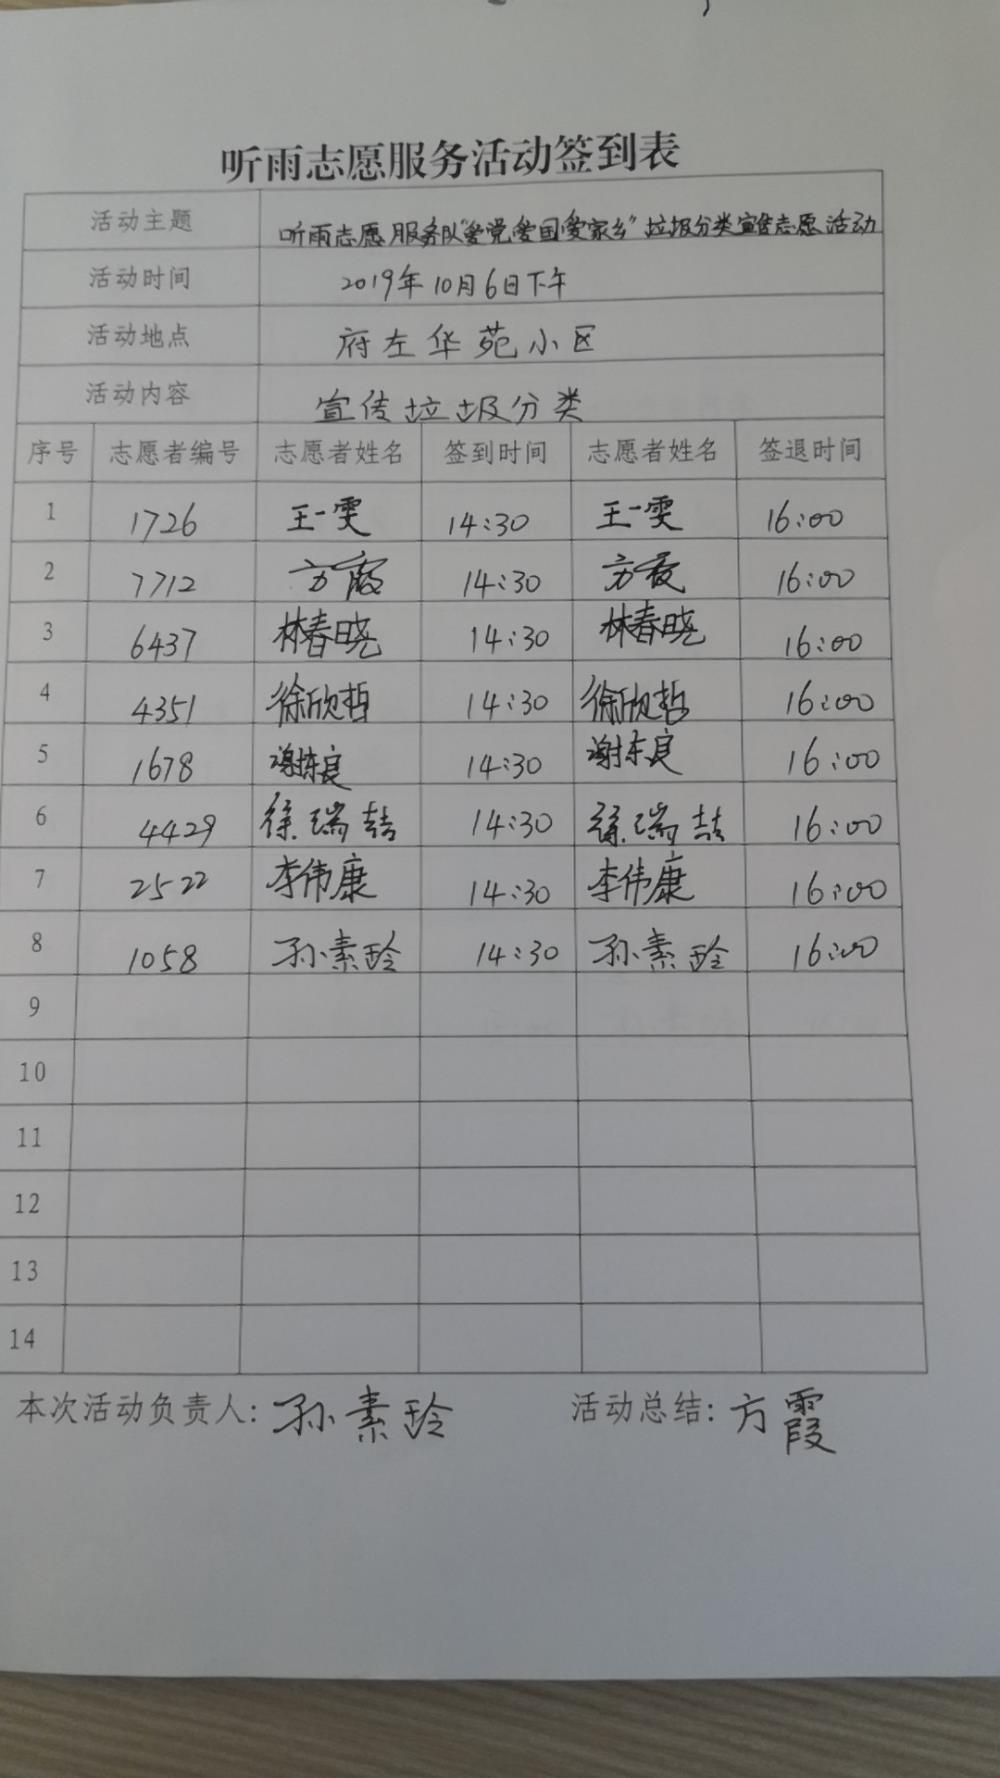 听雨志愿服务活动签到表
活动主题 听雨志愿服务队“爱党爱国爱家乡”垃圾分类宣传志愿活动
活动时间 2019年10月6日下午
活动地点 府左华苑小区
活动内容 宣传垃圾分类
序号 志愿者编号 志愿者姓名 签到时间 志愿者姓名 签退时间
1 1726 王一雯 14:30 王一雯 16:00
2 7712 方霞 14:30 方霞 16:00
3 6437 林春晓 14:30 林春晓 16:00
4 4351 徐欣哲 14:30 徐欣哲 16:00
5 1678 谢东良 14:30 谢东良 16:00
6 4429 徐瑞喆 14:30 徐瑞喆 16:00
7 2522 李伟康 14:30 李伟康 16:00
8 1058 孙素玲 14:30 孙素玲 16:00
9
10
11
12
13
14
本次活动负责人: 孙素玲 活动总结: 方霞